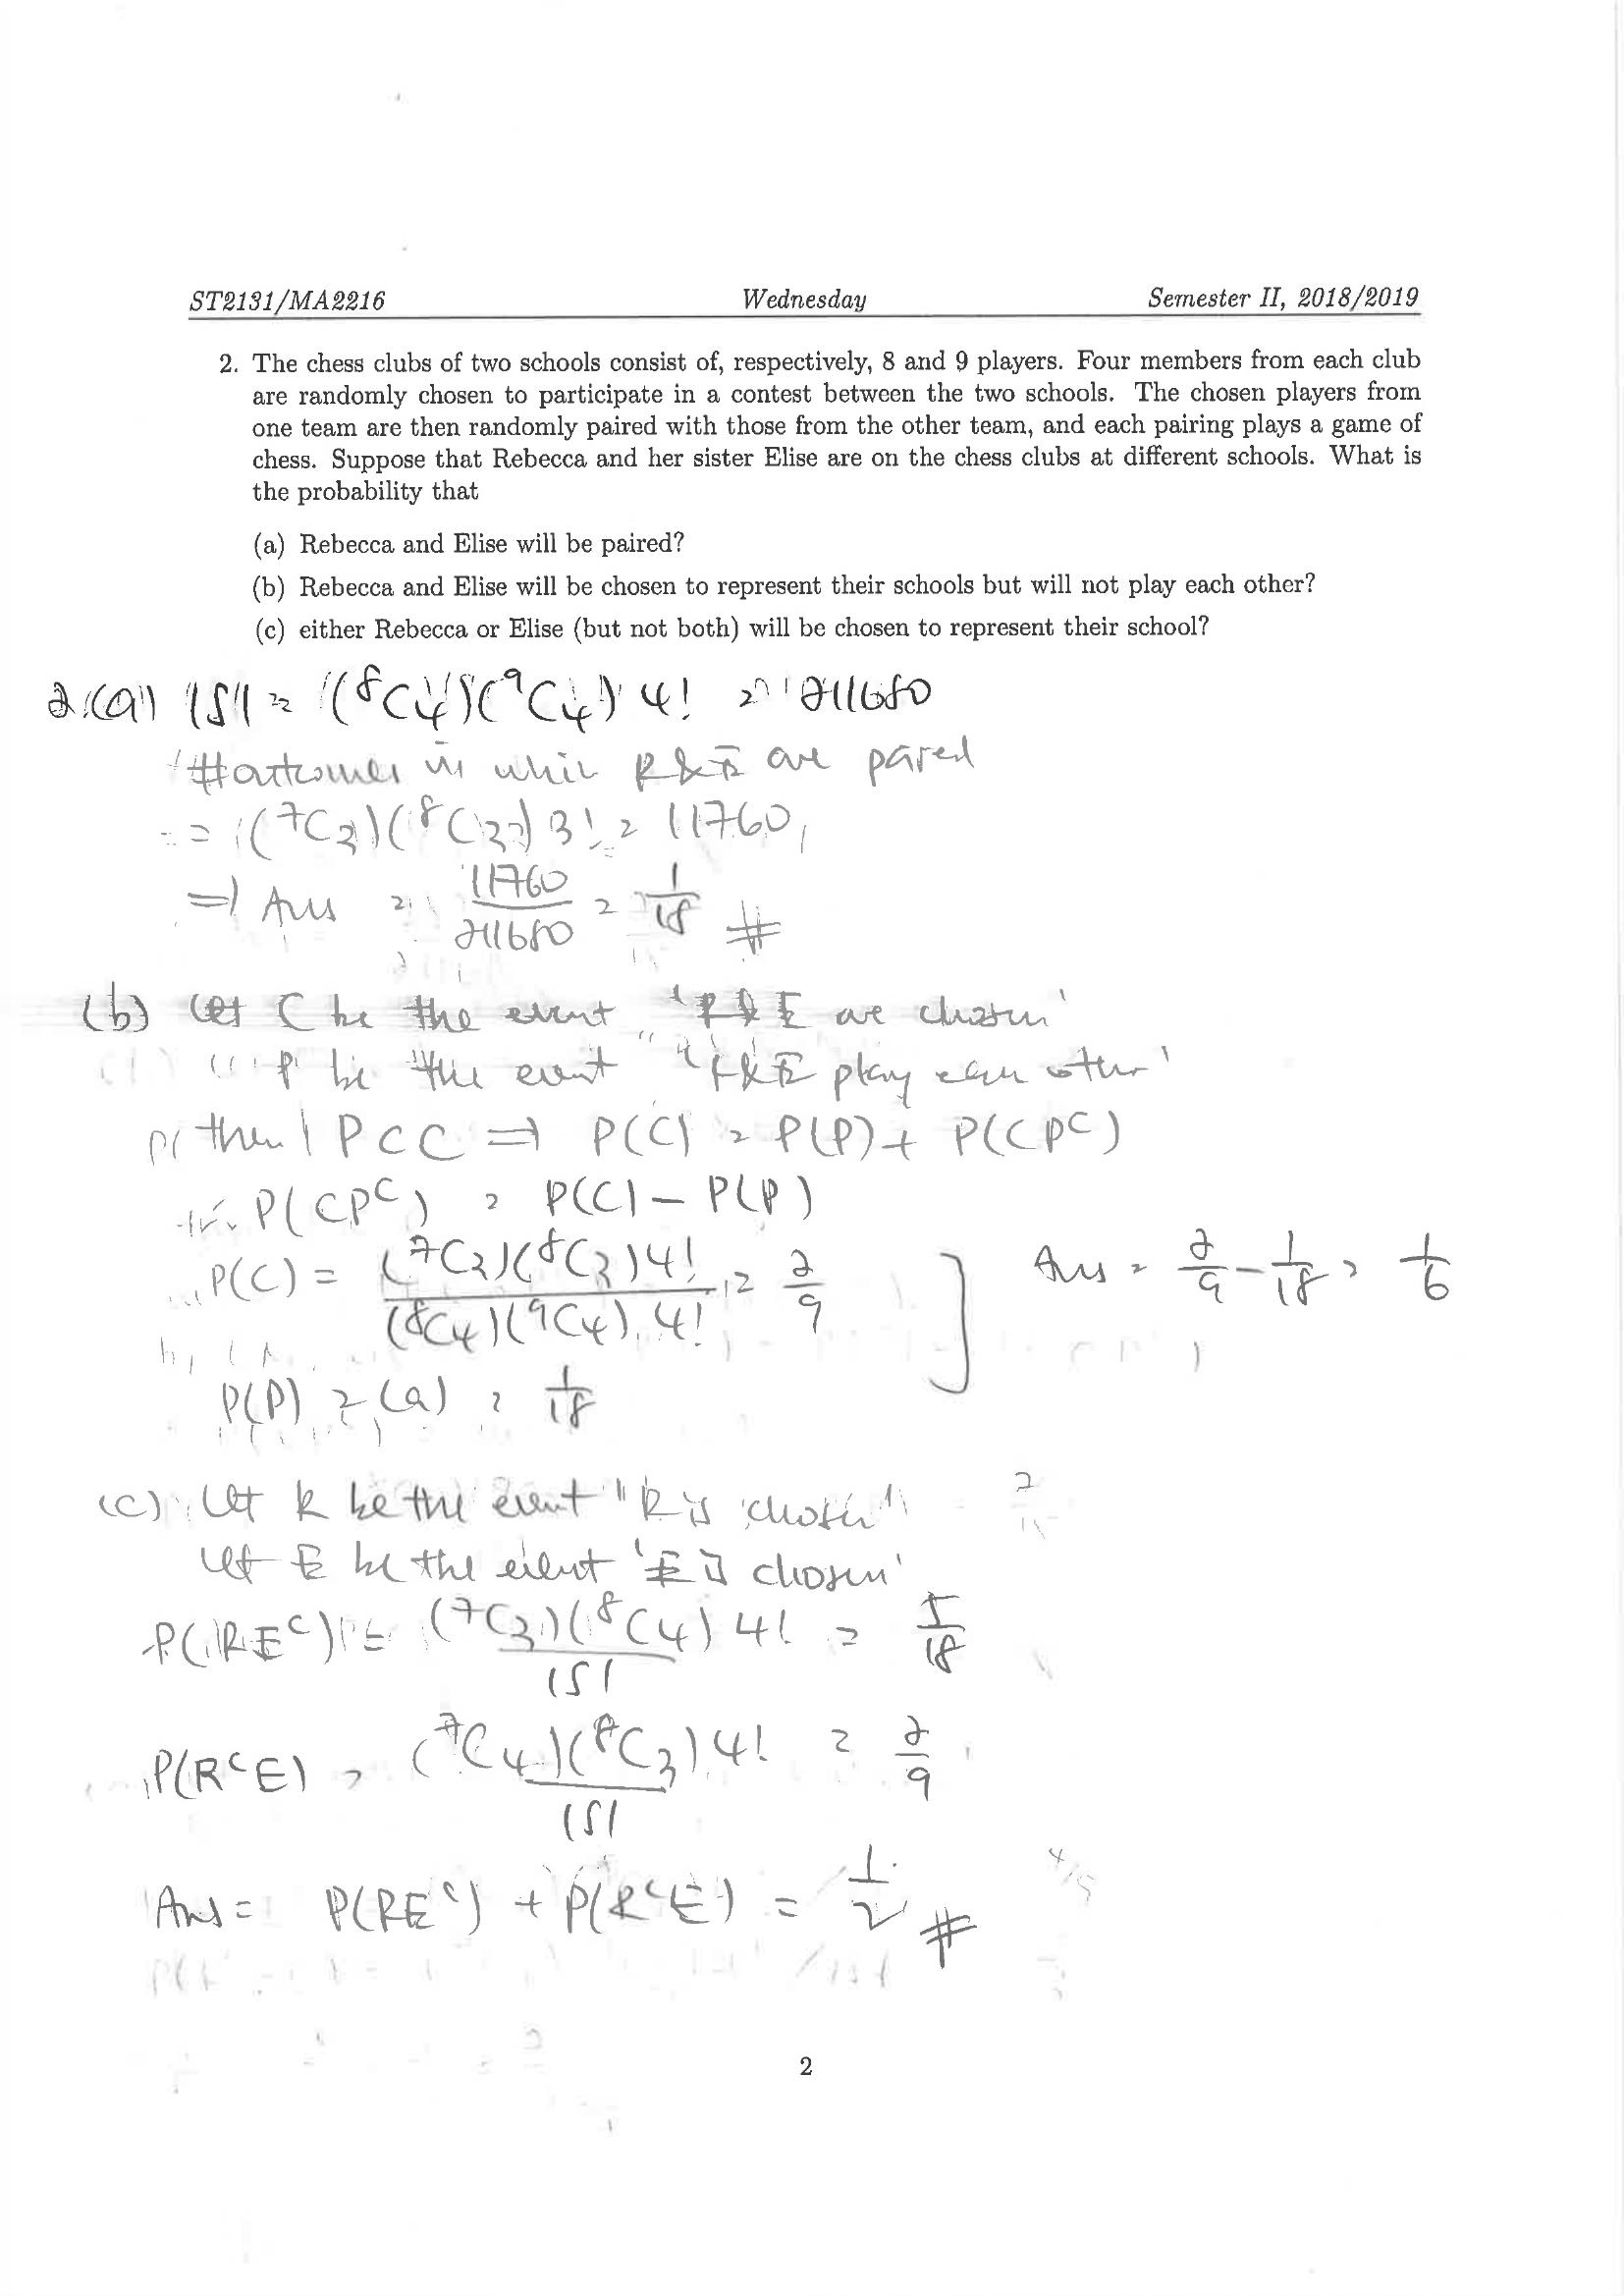 ST2131/MA2216 Wednesday Semester II, 2018/2019
2. The chess clubs of two schools consist of, respectively, 8 and 9 players. Four members from each club
are randomly chosen to participate in a contest between the two schools. The chosen players from
one team are then randomly paired with those from the other team, and each pairing plays a game of
chess. Suppose that Rebecca and her sister Elise are on the chess clubs at different schools. What is
the probability that
(a) Rebecca and Elise will be paired?
(b) Rebecca and Elise will be chosen to represent their schools but will not play each other?
(c) either Rebecca or Elise (but not both) will be chosen to represent their school?
2.(a) |S| = (⁸C₄)(⁹C₄) 4! = 211680
#outcomes in whic R&E are pared
= (⁷C₃)(⁸C₃) 3! = 11760,
⇒ Ans = 11760/211680 = 1/18 #
(b) Let C be the event "R&E are chosen"
" P be the event "R&E play each other"
then P ⊂ C ⇒ P(C) = P(P) + P(CPᶜ)
P(CPᶜ) = P(C) − P(P)
P(C) = (⁷C₃)(⁸C₃) 4! / (⁸C₄)(⁹C₄) 4! = 2/9 ] Ans = 2/9 − 1/18 = 1/6
P(P) = (a) = 1/18
(c) Let R be the event "R is chosen"
Let E be the event "E is chosen"
P(REᶜ) = (⁷C₃)(⁸C₄) 4! / |S| = 5/18
P(RᶜE) = (⁷C₄)(⁸C₃) 4! / |S| = 2/9
Ans = P(REᶜ) + P(RᶜE) = 1/2 #
2